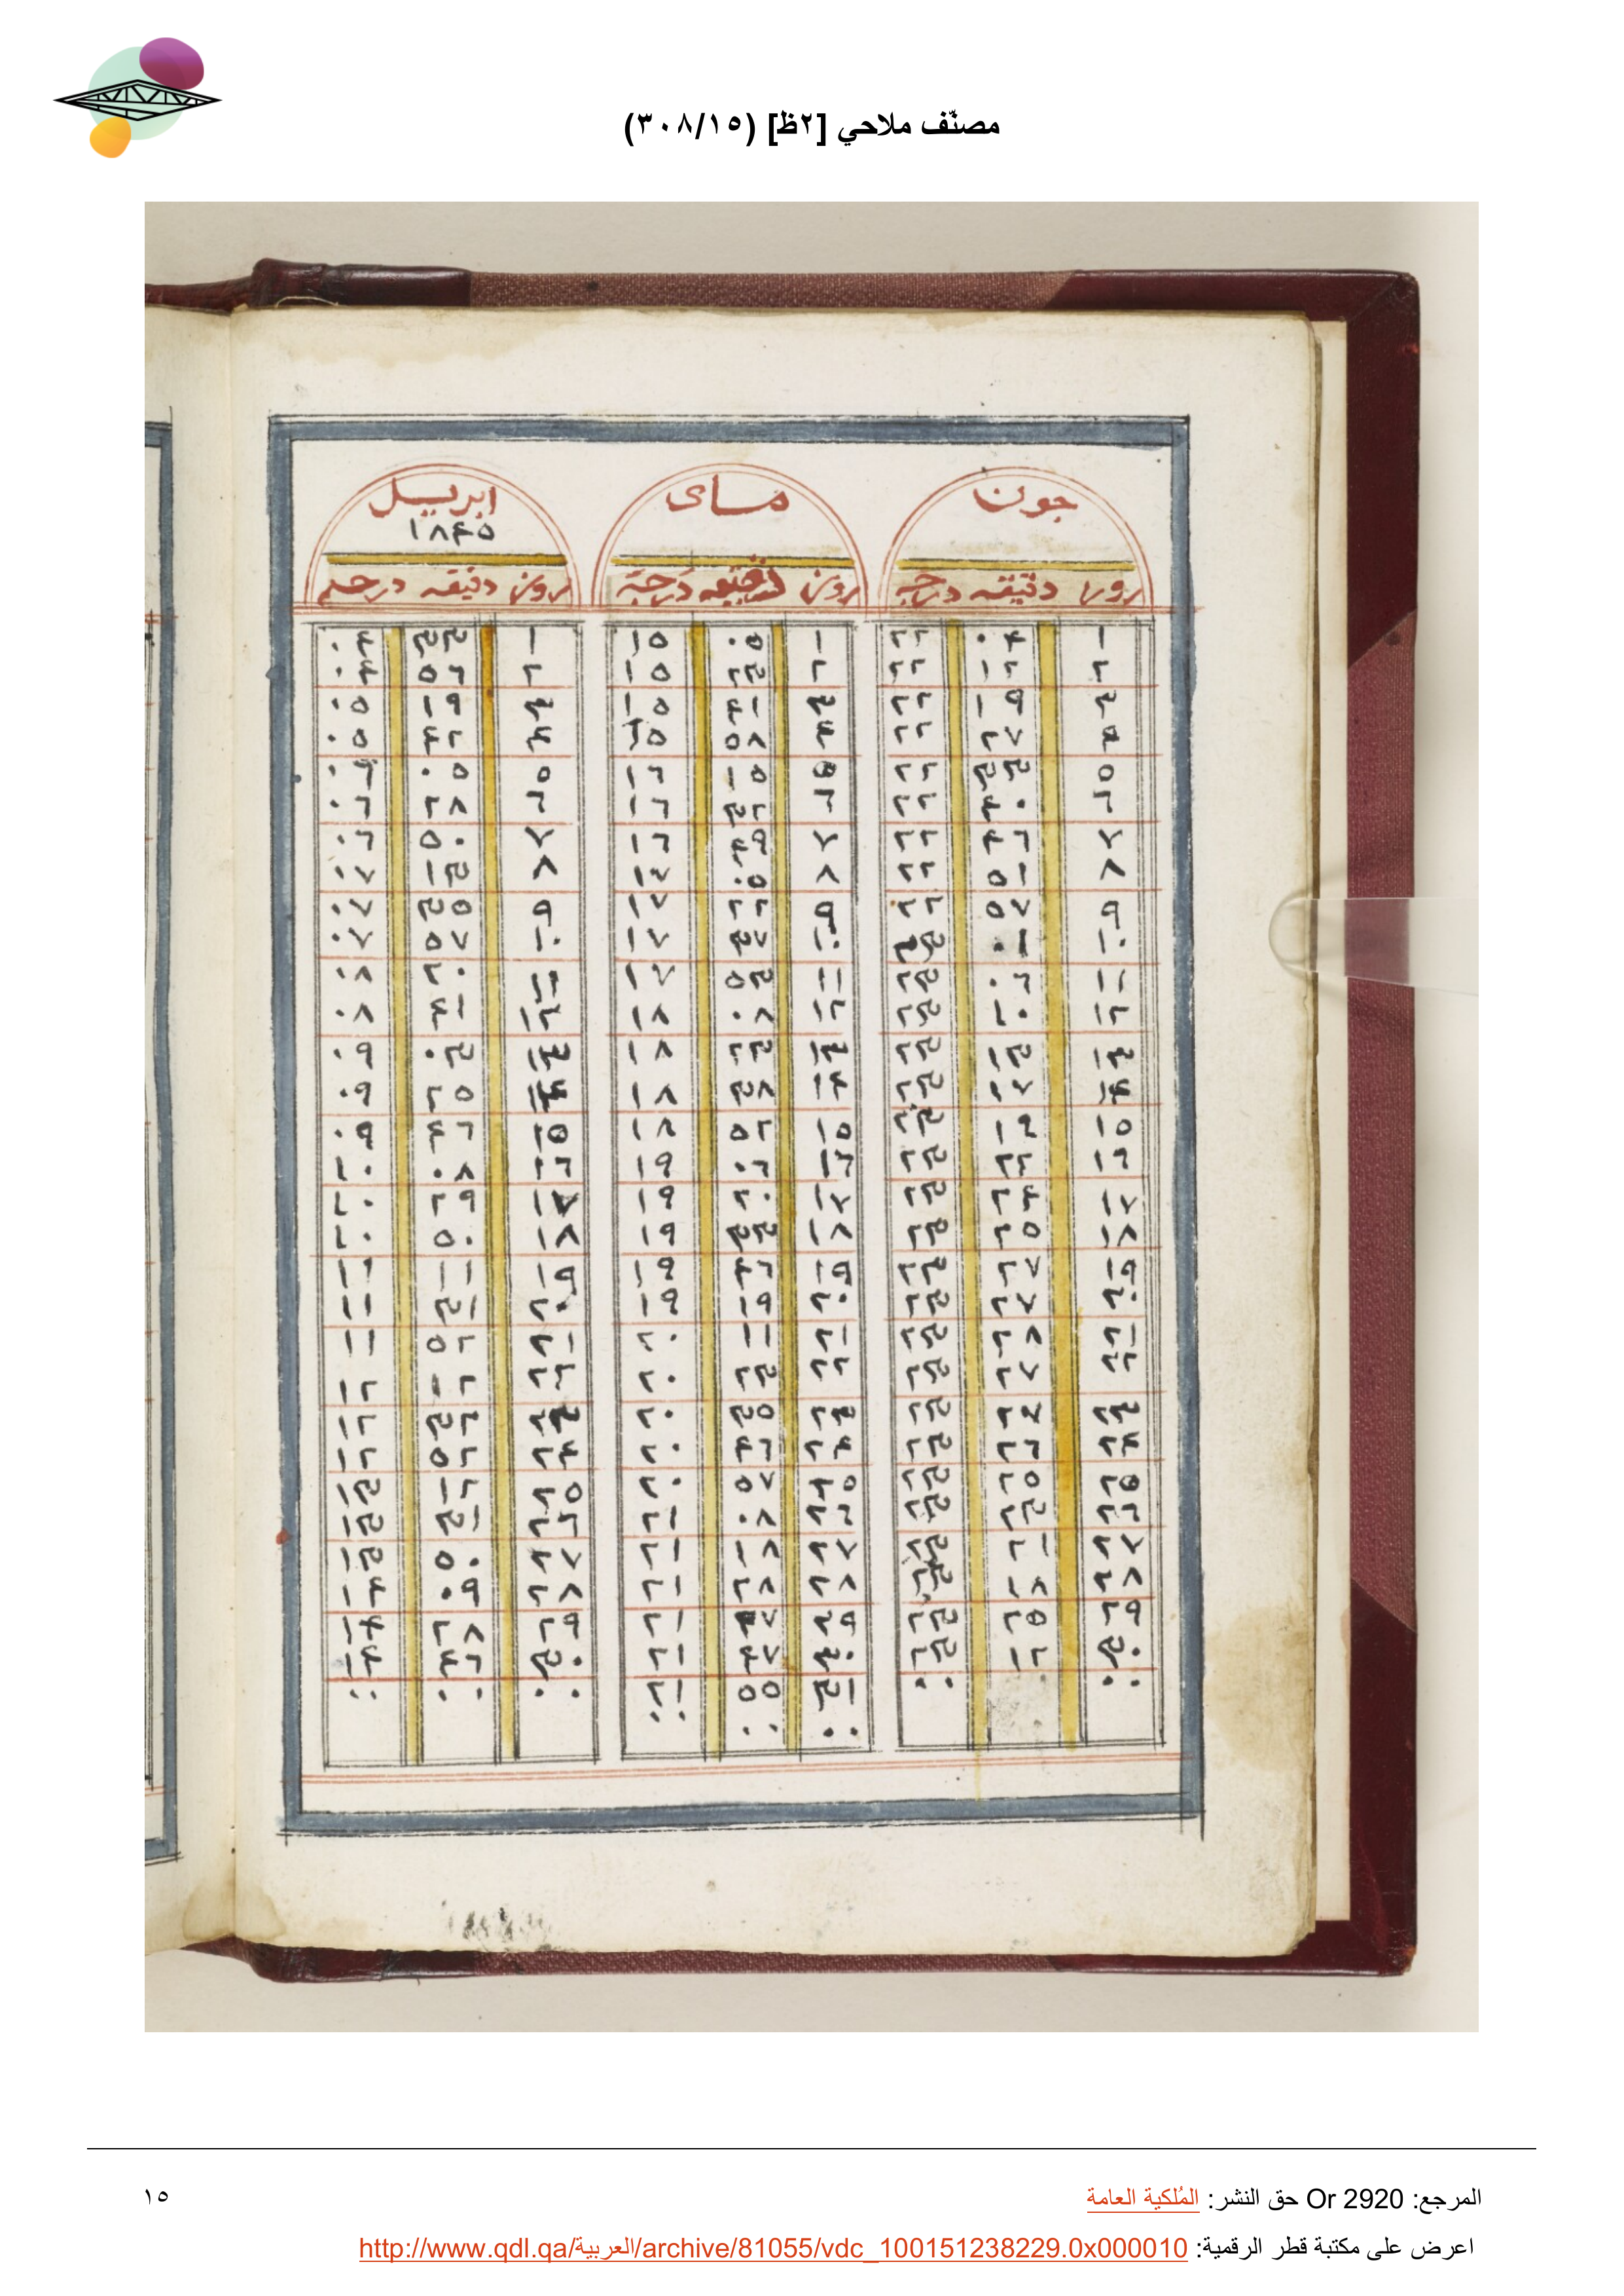 مصنّف ملاحي [٢ظ] (٣٠٨/١٥)
جون ماى ابريل
١٨٤٥
روز دقيقه درجه روز دقيقه درجة روز دقيقه درجه
١ ٠٤ ٢٢ ١ ٠٥ ١٥ ١ ٣٣ ٠٤
٢ ١٢ ٢٢ ٢ ٢٣ ١٥ ٢ ٥٦ ٠٤
٣ ١٩ ٢٢ ٣ ٤١ ١٥ ٣ ١٩ ٠٥
٤ ٢٧ ٢٢ ٤ ٥٨ ١٥ ٤ ٤٢ ٠٥
٥ ٣٣ ٢٢ ٥ ١٥ ١٦ ٥ ٠٥ ٠٦
٦ ٤٠ ٢٢ ٦ ٣٢ ١٦ ٦ ٢٨ ٠٦
٧ ٤٦ ٢٢ ٧ ٤٩ ١٦ ٧ ٥٠ ٠٦
٨ ٥١ ٢٢ ٨ ٠٥ ١٧ ٨ ١٣ ٠٧
٩ ٥٧ ٢٢ ٩ ٢٢ ١٧ ٩ ٣٥ ٠٧
١٠ ٠١ ٢٣ ١٠ ٣٧ ١٧ ١٠ ٥٧ ٠٧
١١ ٠٦ ٢٣ ١١ ٥٣ ١٧ ١١ ٢٠ ٠٨
١٢ ١٠ ٢٣ ١٢ ٠٨ ١٨ ١٢ ٤١ ٠٨
١٣ ١٣ ٢٣ ١٣ ٢٣ ١٨ ١٣ ٠٣ ٠٩
١٤ ١٧ ٢٣ ١٤ ٣٨ ١٨ ١٤ ٢٥ ٠٩
١٥ ١٩ ٢٣ ١٥ ٥٢ ١٨ ١٥ ٤٦ ٠٩
١٦ ٢٢ ٢٣ ١٦ ٠٦ ١٩ ١٦ ٠٨ ١٠
١٧ ٢٤ ٢٣ ١٧ ٢٠ ١٩ ١٧ ٢٩ ١٠
١٨ ٢٥ ٢٣ ١٨ ٣٣ ١٩ ١٨ ٥٠ ١٠
١٩ ٢٧ ٢٣ ١٩ ٤٦ ١٩ ١٩ ١١ ١١
٢٠ ٢٧ ٢٣ ٢٠ ١٩ ١٩ ٢٠ ٣١ ١١
٢١ ٢٨ ٢٣ ٢١ ١١ ٢٠ ٢١ ٥٢ ١١
٢٢ ٢٧ ٢٣ ٢٢ ٢٣ ٢٠ ٢٢ ١٢ ١٢
٢٣ ٢٧ ٢٣ ٢٣ ٣٥ ٢٠ ٢٣ ٣٢ ١٢
٢٤ ٢٦ ٢٣ ٢٤ ٤٦ ٢٠ ٢٤ ٥٢ ١٢
٢٥ ٢٥ ٢٣ ٢٥ ٥٧ ٢٠ ٢٥ ١٢ ١٣
٢٦ ٢٣ ٢٣ ٢٦ ٠٨ ٢١ ٢٦ ٣١ ١٣
٢٧ ٢١ ٢٣ ٢٧ ١٨ ٢١ ٢٧ ٥٠ ١٣
٢٨ ١٨ ٢٣ ٢٨ ٢٨ ٢١ ٢٨ ٠٩ ١٤
٢٩ ٢٥ ٢٣ ٢٩ ٣٧ ٢١ ٢٩ ٢٨ ١٤
٣٠ ١٢ ٢٣ ٣٠ ٤٧ ٢١ ٣٠ ٤٦ ١٤
٠٠ ٠ ٠٠ ٣١ ٥٥ ٢١ ٠٠ ٠٠ ٠٠
٠٠ ٠٠ ٠٠
المرجع: Or 2920 حق النشر: المُلكية العامة
١٥
اعرض على مكتبة قطر الرقمية: http://www.qdl.qa/العربية/archive/81055/vdc_100151238229.0x000010